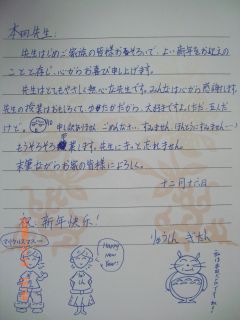 本田先生:
先生はじめご家族の皆様お春そろいで、よい新年をお迎えの
ことと存じ、心からお喜び申し上げます。
先生はとてもやさしく熱心な先生です。みんなは心から感謝します。
先生の授業はおもしろくて、分かりやすいから、大好きですよ。ただ、
けど。
申し訳ありません ごめんなさい、すみません ほんとうにすみません…)
もうそろそろ卒業します。先生にずっと忘れません。
末筆ながらお家の皆様によろしく。
十二月十六日
祝:新年快乐!
りゅうしん
HAPPY
New
Year!